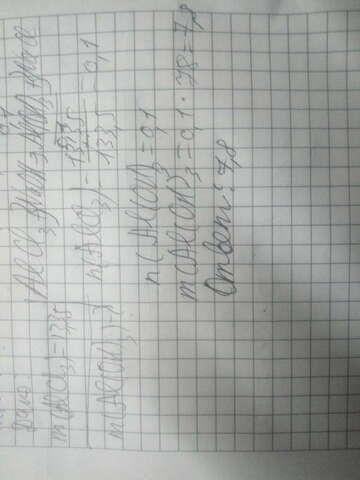 Дано
m(AlCl3)=13,35
m(Al(OH)3)-?
AlCl3+3NaOH
n(AlCl3)= 13,35 / 133,5 =0,1
n(Al(OH)3=0,1
m(Al(OH)3=0,1·78=7,8
Ответ: 7,8